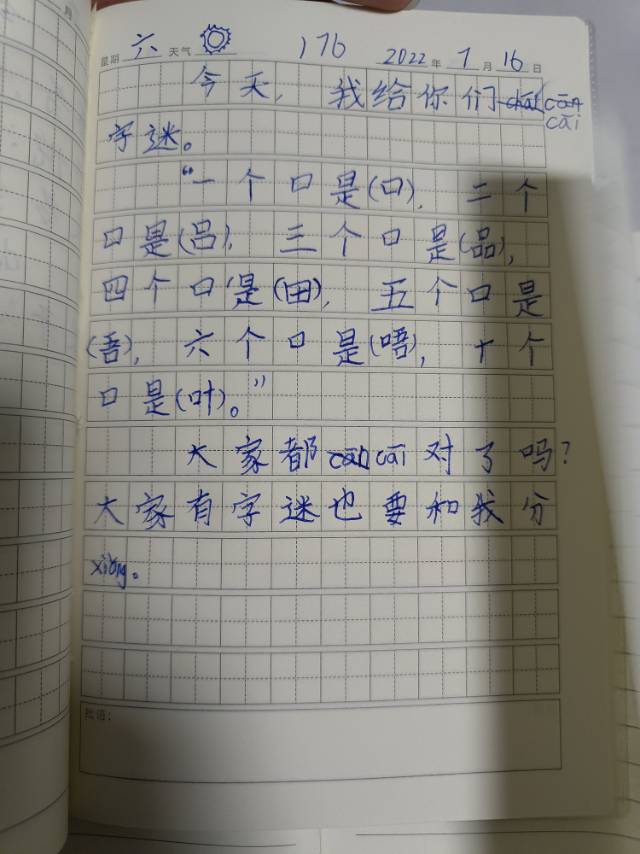 星期 六 天气 176 2022 年 7 月 16 日
今天，我给你们cāi
字谜。
“一个口是(口)，二个
口是(吕)，三个口是(品)，
四个口是(田)，五个口是
(吾)，六个口是(唔)，十个
口是(叶)。”
大家都cāi对了吗？
大家有字谜也要和我分
xiǎng。
批语：